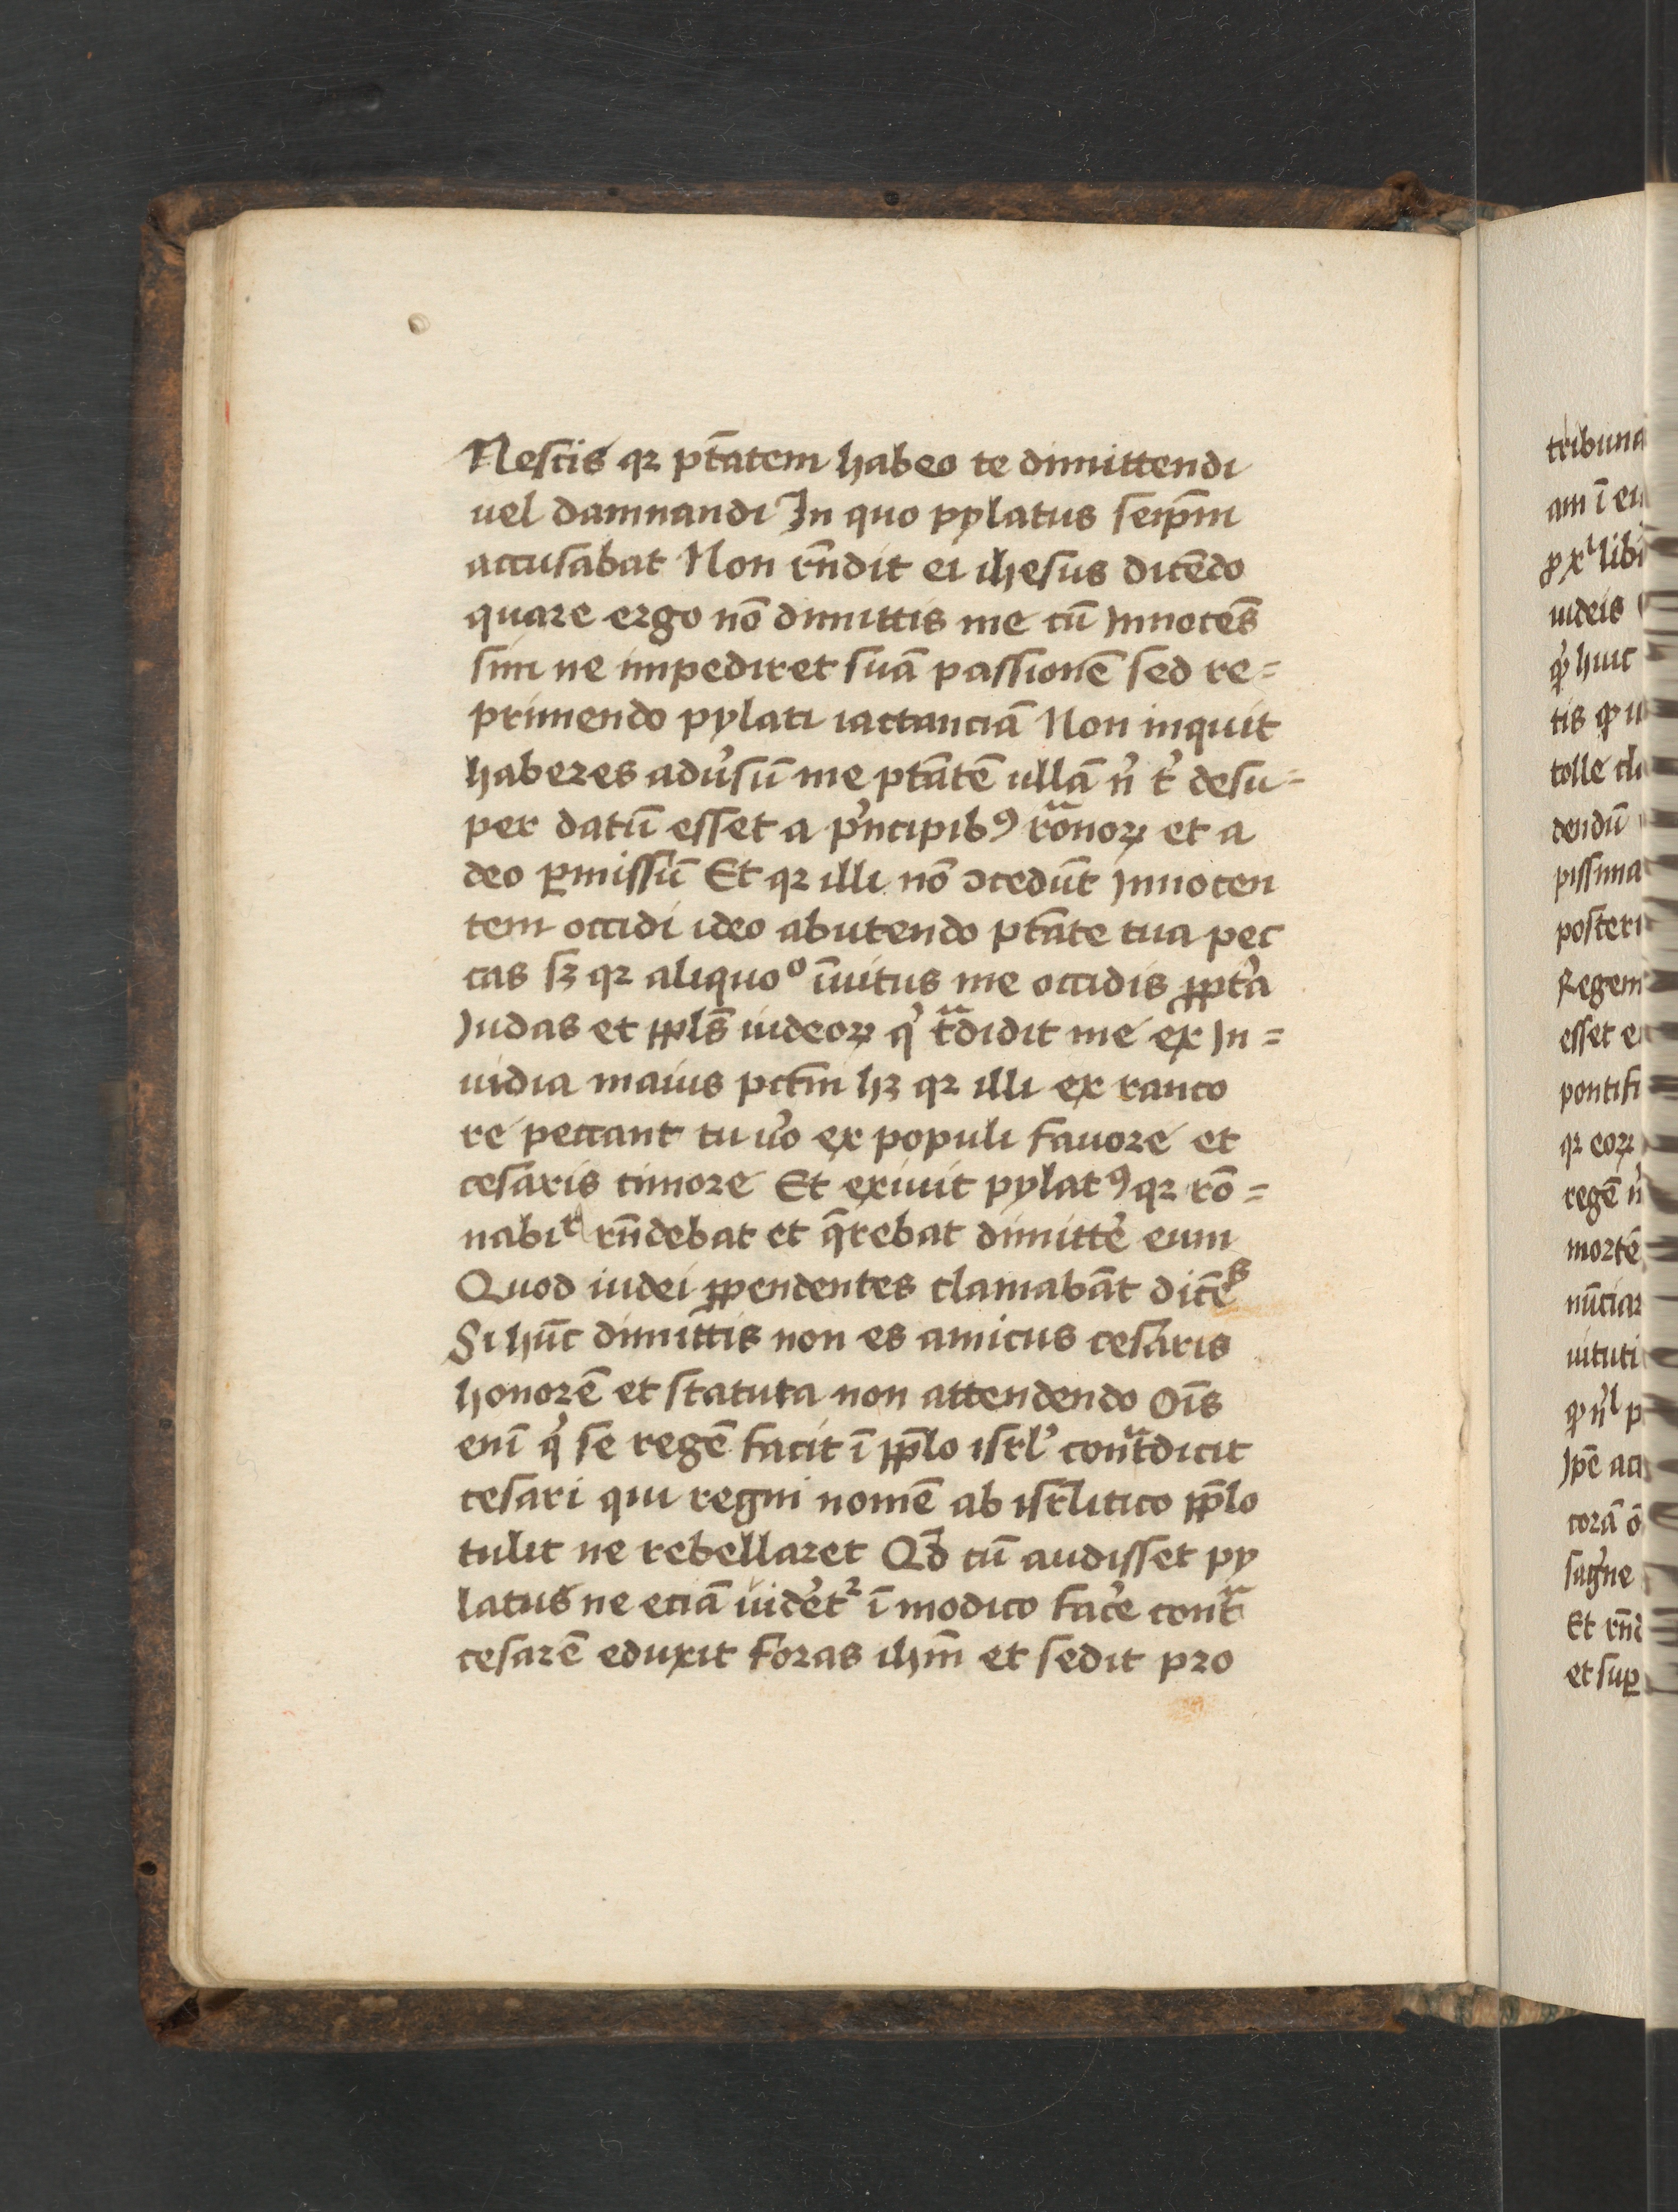 Nescis qꝛ ptãtem habeo te dimittendi
uel damnandi In quo pylatus seip̃m
accusabat Non rñdit ei ihesus dicẽdo
quare ergo nõ dimittis me cũ Innocẽs
sim ne impediret suã passionẽ sed re=
primendo pylati iactanciã Non inquit
haberes adu̓sũ me ptãtẽ ullã n̓ t̓ desu=
per datũ esset a p̓ncipibꝰ ro̓ãnoꝝ et a
deo ꝑmissũ Et qꝛ illi nõ ꝯcedũt Innocen
tem occidi ideo abutendo ptãte tua pec
cas sꝫ qꝛ aliquoº ĩuitus me occidis ꝓpt̓a
Iudas et ppl̃s iudeoꝝ q̓ tᷓdidit me ex In=
uidia maius pctm̃ hꝫ qꝛ illi ex ranco
re peccant tu u̓o ex populi fauore et
cesaris timore Et exiuit pylatꝰ qꝛ rõ=
nabiᵗ rñdebat et q̃rebat dimitte̓ eum
Quod iudei ꝑpendentes clamabãt dicẽˢ
Si hũc dimittis non es amicus cesaris
honorẽ et statuta non attendendo Oı̃s
enĩ q̓ se regẽ facit ĩ pp̃lo isrl̓ contᷓdicit
cesari qui regni nomẽ ab isrl̃itico pp̃lo
tulit ne rebellaret Qd̃ cũ audisset py
latus ne eciã uide̓t᷑ ĩ modico face̓ contᷓ
cesarẽ eduxit foras ihm̃ et sedit pro
tribuna
am ĩ eu
libi
uideis
huic
tis
tolle
dendũ
pissima
posteri
Regem
esset e
pontifi
qꝛ eoꝝ
regẽ
mortẽ
nũciar
uituti
Ip̃e
corã
Et rñd
et suꝑ